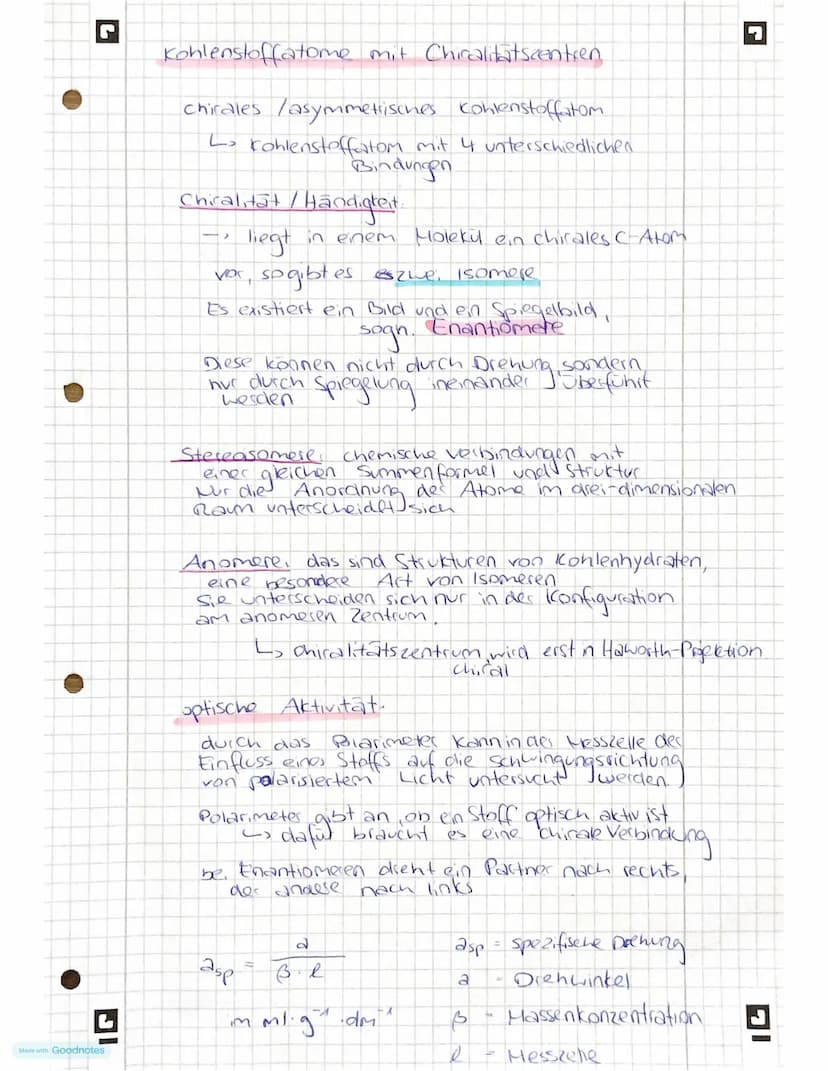 Kohlenstoffatome mit Chiralitätszentren
chirales /asymmetrisches Kohlenstoffatom
↳ Kohlenstoffatom mit 4 unterschiedlichen
Bindungen
Chiralität / Händigkeit:
→ liegt in einem Molekül ein chirales C-Atom
vor, so gibt es zwei Isomere
Es existiert ein Bild und ein Spiegelbild,
sogn. Enantiomere
Diese können nicht durch Drehung, sondern
nur durch Spiegelung ineinander überführt
werden
Stereosomere: chemische Verbindungen mit
einer gleichen Summenformel und Struktur
Nur die Anordnung der Atome im drei-dimensionalen
Raum unterscheidet sich
Anomere: das sind Strukturen von Kohlenhydraten,
eine besondere Art von Isomeren
Sie unterscheiden sich nur in der Konfiguration
am anomeren Zentrum.
↳ Chiralitätszentrum wird erst n Haworth-Projektion
chiral
optische Aktivität:
durch das Polarimeter kann in der Messzelle der
Einfluss eines Stoffs auf die Schwingungsrichtung
von polarisiertem Licht untersucht werden
Polarimeter gibt an, ob en Stoff optisch aktiv ist
↳ dafür braucht es eine chirale Verbindung
bei Enantiomeren dreht ein Partner nach rechts,
der andere nach links
αsp = α / β · l
αsp = spezifische Drehung
α = Drehwinkel
m ml·g⁻¹·dm⁻¹
β = Massenkonzentration
l = Messzelle
Made with Goodnotes